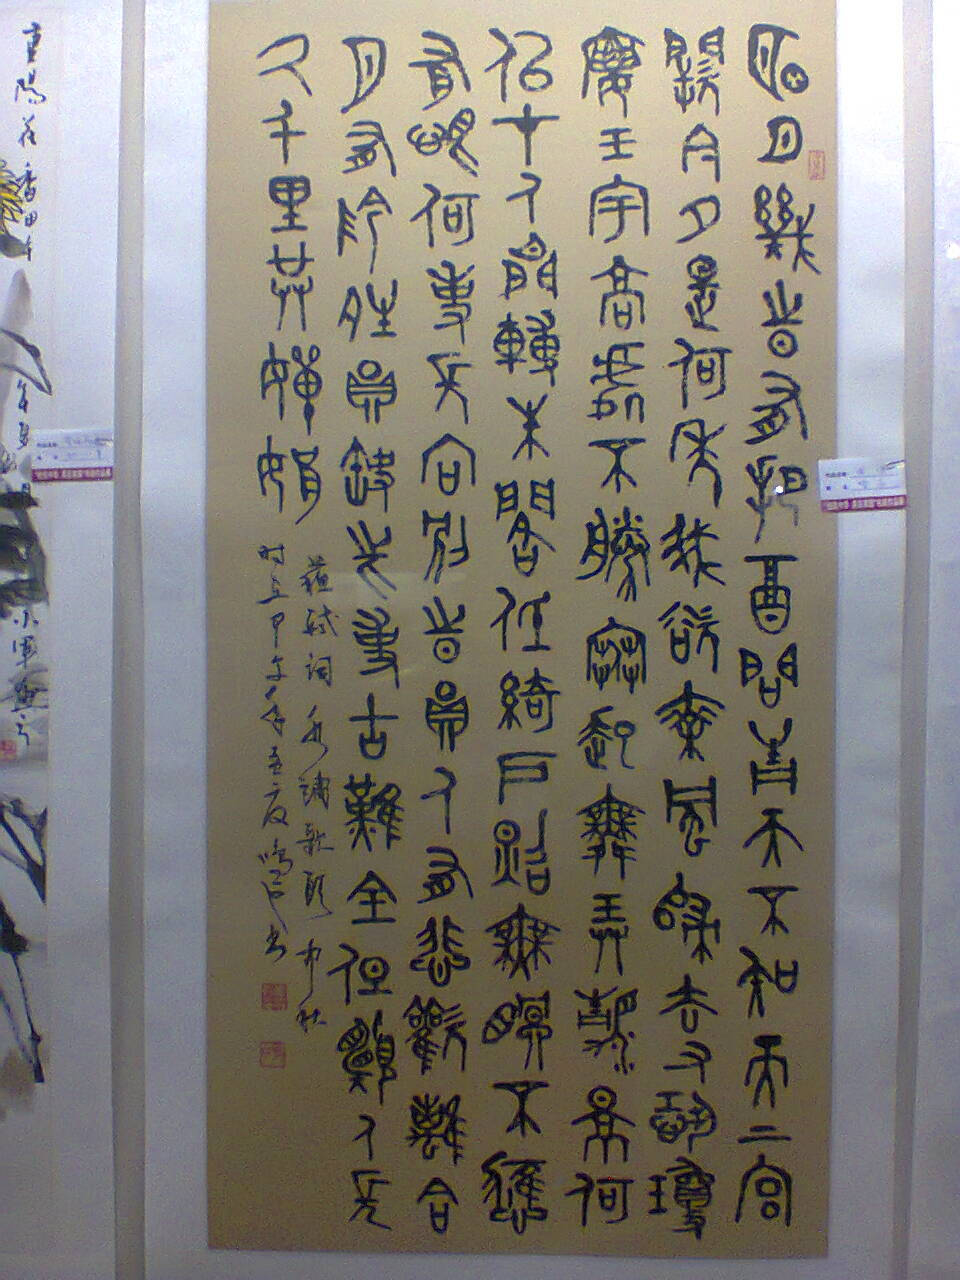 明月幾時有把酒問青天不知天上宮
闕今夕是何年我欲乘風歸去又恐瓊
樓玉宇高處不勝寒起舞弄清影何
似在人間轉朱閣低綺戶照無眠不應
有恨何事長向別時圓人有悲歡離合
月有陰晴圓缺此事古難全但願人長
久千里共嬋娟
蘇軾詞水調歌頭中秋
時在甲午年孟夏書
重陽花香